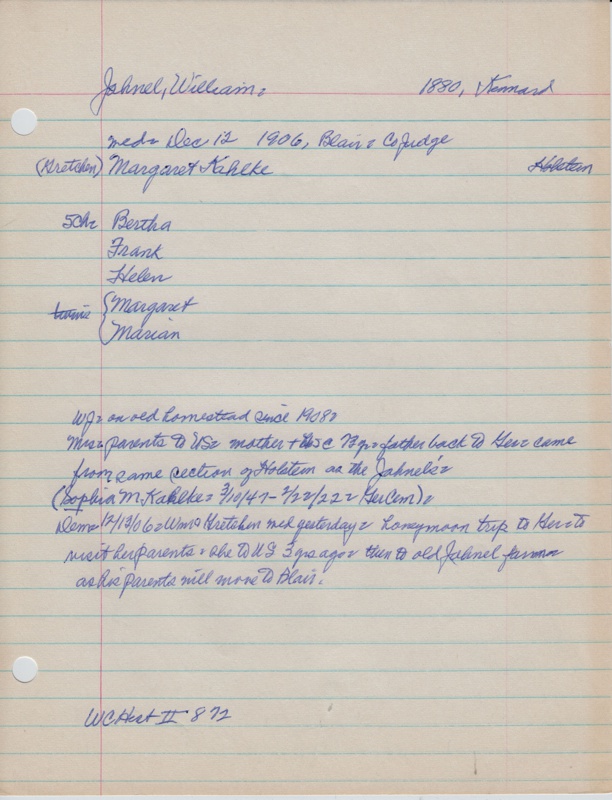 Jahnel, William = 1880, Kennard
med = Dec 12 1906, Blair = Co Judge
(Gretchen) Margaret Kahlke Holstein
5Ch = Bertha
Frank
Helen
twins { Margaret
Marian
WJ = on old homestead since 1908 =
Mrs = parents to US = mother + WJC father back to Ger = came
from same section of Holstein as the Jahnel's =
(Sophia M. Kahlke = 3/10/47 - 2/22/22 = GerCem) =
Dem = 12/13/06 = Wm + Gretchen med yesterday = honeymoon trip to Ger = to
visit her parents = she to US 3 yrs ago = then to old Jahnel farm =
as his parents will move to Blair.
WCHist II 872